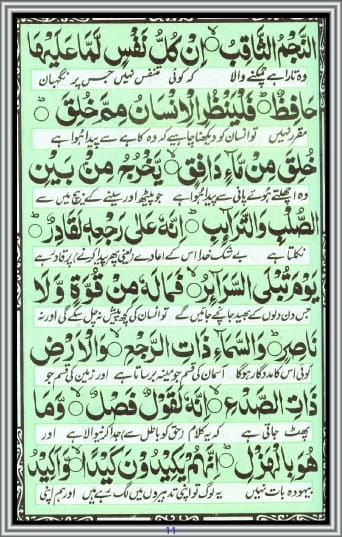 النَّجْمُ الثَّاقِبُ ۝ اِنْ كُلُّ نَفْسٍ لَّمَّا عَلَيْهَا
وہ تارا ہے چمکنے والا کہ کوئی متنفس نہیں جس پر نگہبان
حَافِظٌ ۝ فَلْيَنْظُرِ الْاِنْسَانُ مِمَّ خُلِقَ ۝
مقرر نہیں تو انسان کو دیکھنا چاہیے کہ وہ کاہے سے پیدا ہوا ہے
خُلِقَ مِنْ مَّآءٍ دَافِقٍ ۝ يَّخْرُجُ مِنْۢ بَيْنِ
وہ اچھلتے ہوئے پانی سے پیدا ہوا ہے جو پیٹھ اور سینے کے بیچ میں سے
الصُّلْبِ وَالتَّرَآئِبِ ۝ اِنَّهٗ عَلٰى رَجْعِهٖ لَقَادِرٌ ۝
نکلتا ہے بے شک خدا اس کے اعادے (یعنی پھر پیدا کرنے) پر قادر ہے
يَوْمَ تُبْلَى السَّرَآئِرُ ۝ فَمَا لَهٗ مِنْ قُوَّةٍ وَّلَا
جس دن دلوں کے بھید جانچے جائیں گے تو انسان کی کچھ پیش نہ چل سکے گی اور نہ
نَاصِرٍ ۝ وَالسَّمَآءِ ذَاتِ الرَّجْعِ ۝ وَالْاَرْضِ
کوئی اس کا مددگار ہوگا آسمان کی قسم جو مینہ برساتا ہے اور زمین کی قسم جو
ذَاتِ الصَّدْعِ ۝ اِنَّهٗ لَقَوْلٌ فَصْلٌ ۝ وَّمَا
پھٹ جاتی ہے کہ یہ کلام (حق کو باطل سے) جدا کرنیوالا ہے اور
هُوَ بِالْهَزْلِ ۝ اِنَّهُمْ يَكِيْدُوْنَ كَيْدًا ۝ وَّاَكِيْدُ
بیہودہ بات نہیں یہ لوگ تو اپنی تدبیروں میں لگ رہے ہیں اور ہم اپنی
11